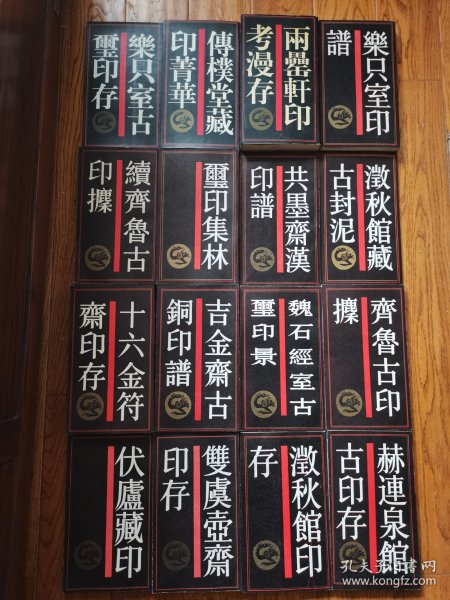 樂只室古
璽印存
傳樸堂藏
印菁華
兩罍軒印
考漫存
樂只室印
譜
續齊魯古
印攈
璽印集林
共墨齋漢
印譜
澂秋館藏
古封泥
十六金符
齋印存
吉金齋古
銅印譜
魏石經室古
璽印景
齊魯古印
攈
伏廬藏印
雙虞壺齋
印存
澂秋館印
存
赫連泉館
古印存
孔夫子旧书网
www.kongfz.com